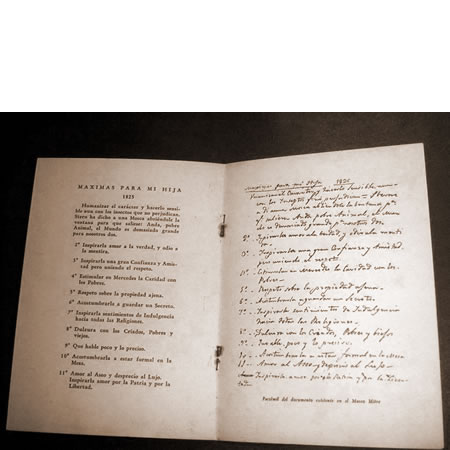 MAXIMAS PARA MI HIJA
1825
Humanizar el carácter y hacerlo sensi-
ble aun con los insectos que no perjudican.
Stern ha dicho a una Mosca abriéndole la
ventana para que saliese: Anda, pobre
Animal, el Mundo es demasiado grande
para nosotros dos.
2º Inspirarla amor a la verdad, y odio a
la mentira.
3º Inspirarla una gran Confianza y Amis-
tad pero uniendo el respeto.
4º Estimular en Mercedes la Caridad con
los Pobres.
5º Respeto sobre la propiedad ajena.
6º Acostumbrarla a guardar un Secreto.
7º Inspirarla sentimientos de Indulgencia
hacia todas las Religiones.
8º Dulzura con los Criados, Pobres y
viejos.
9º Que hable poco y lo preciso.
10º Acostumbrarla a estar formal en la
Mesa.
11º Amor al Aseo y desprecio al Lujo.
Inspirarla amor por la Patria y por la
Libertad.
para mi
1825
2º Inspirarla amor a la verdad, y odio a la menti-
ra.
3º Inspirarla una gran Confianza y Amistad
pero uniendo el respeto
4º Estimular en Mercedes la Caridad con los
Pobres.
5º Respeto sobre la propiedad
6º guardar un Secreto.
7º Inspirarla sentimientos de Indulgencia
todas las Religiones
8º Dulzura con los Criados, Pobres y viejos
9º Que hable poco y lo preciso.
10º Acostumbrarla a estar formal en la Mesa
11º Amor al Aseo y desprecio al Lujo
Inspirarla amor por la Patria y por la Liber-
tad
Facsímil del documento existente en el Museo Mitre